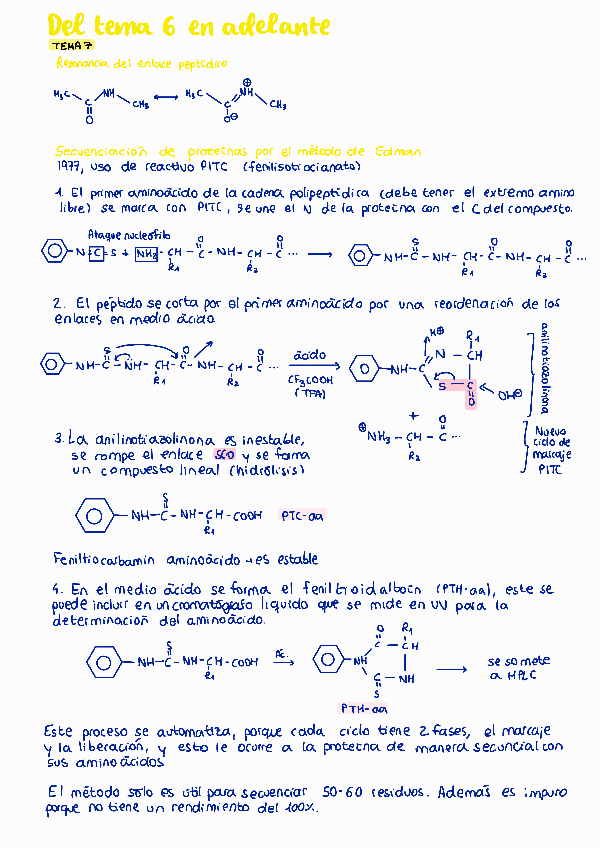 Del tema 6 en adelante
TEMA 7
Resonancia del enlace peptídico
H₃C NH CH₃ ⟷ H₃C NH⊕ CH₃
C C
O O⊖
Secuenciación de proteínas por el método de Edman
1977, uso de reactivo PITC (fenilisotiocianato)
1. El primer aminoácido de la cadena polipeptídica (debe tener el extremo amino
libre) se marca con PITC, se une el N de la proteína con el C del compuesto.
Ataque nucleófilo O O S O O
N=C=S + NH₂-CH-C-NH-CH-C ... → NH-C-NH-CH-C-NH-CH-C ...
R₁ R₂ R₁ R₂
2. El péptido se corta por el primer aminoácido por una reordenación de los
enlaces en medio ácido
S O O ácido H⊕ R₁
NH-C-NH-CH-C-NH-CH-C ... → NH-C N CH
R₁ R₂ CF₃COOH S C OH⊖
(TFA) O
anilinotiazolinona
+
⊕NH₃-CH-C ...
O
R₂
Nuevo
ciclo de
marcaje
PITC
3. La anilinotiazolinona es inestable,
se rompe el enlace SCO y se forma
un compuesto lineal (hidrólisis)
S
NH-C-NH-CH-COOH PTC-aa
R₁
Feniltiocarbamin aminoácido → es estable
4. En el medio ácido se forma el feniltioidaltoin (PTH-aa), este se
puede incluir en un cromatógrafo líquido que se mide en UV para la
determinación del aminoácido.
S Ác. O R₁
NH-C-NH-CH-COOH → NH C CH → se somete
R₁ C NH a HPLC
S
PTH-aa
Este proceso se automatiza, porque cada ciclo tiene 2 fases, el marcaje
y la liberación, y esto le ocurre a la proteína de manera secuncial con
sus aminoácidos
El método solo es útil para secuenciar 50-60 residuos. Además es impuro
porque no tiene un rendimiento del 100%.